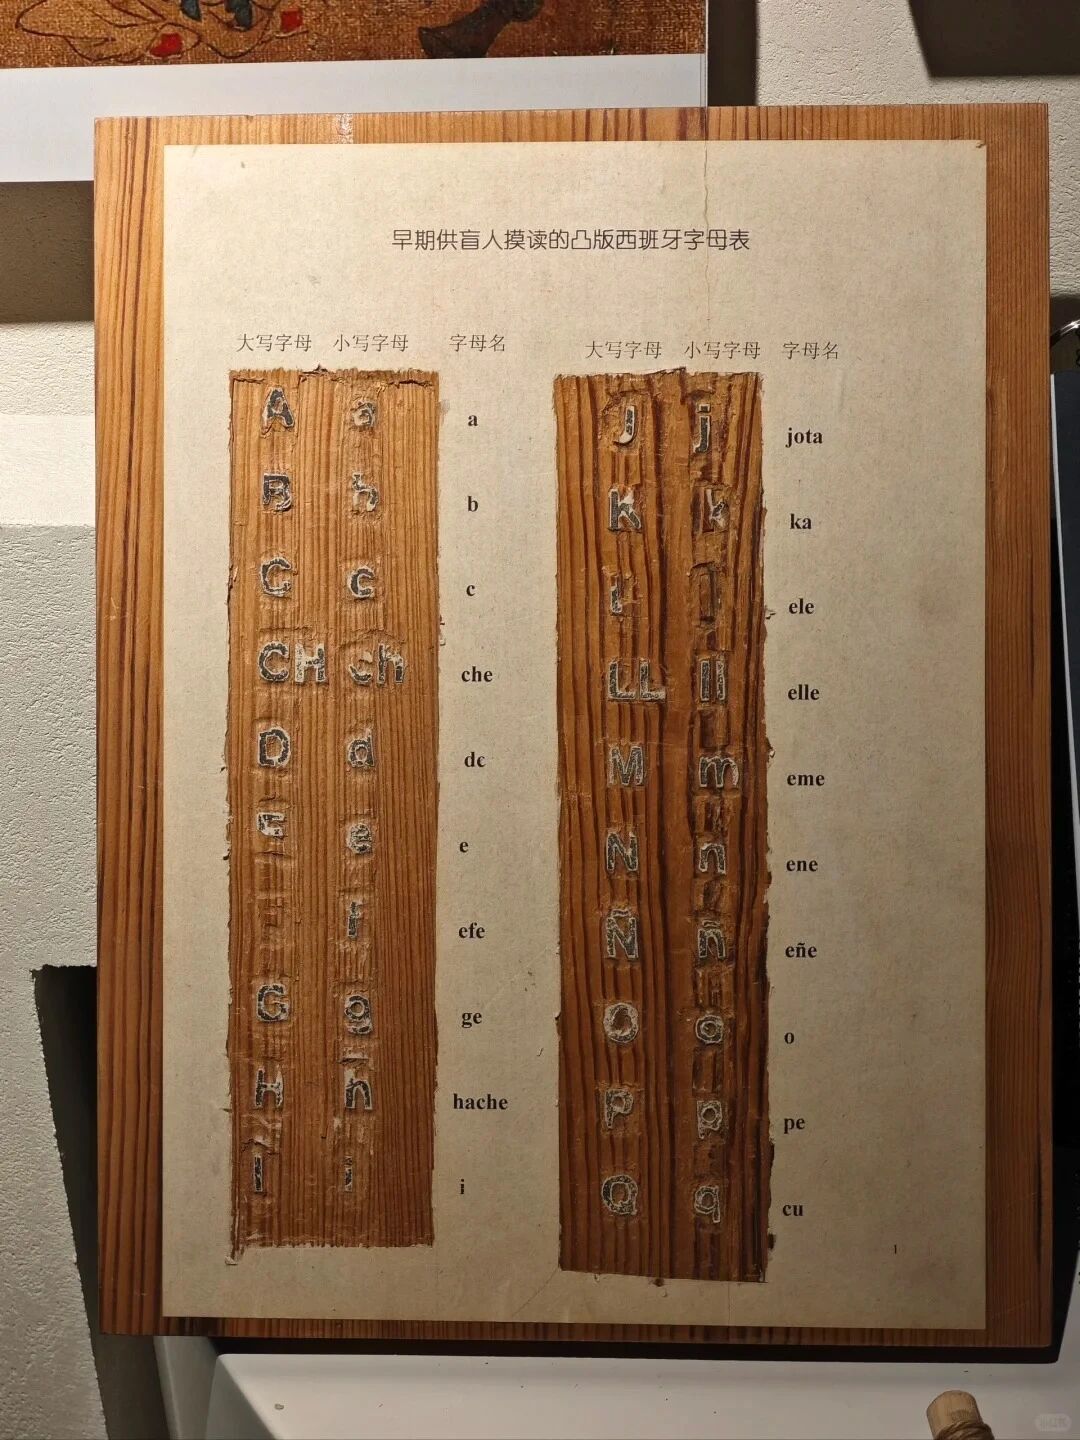 早期供盲人摸读的凸版西班牙字母表
大写字母 小写字母 字母名
A a a
B b b
C c c
CH ch che
D d de
E e e
f efe
G g ge
H h hache
I i i
大写字母 小写字母 字母名
J j jota
K k ka
L l ele
LL ll elle
M m eme
N n ene
Ñ ñ eñe
O o o
P p pe
Q q cu
1